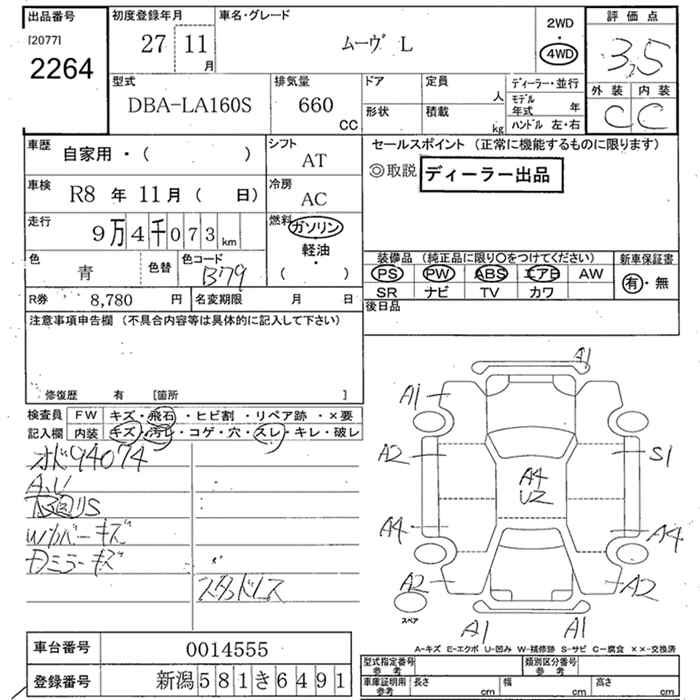 出品番号 初度登録年月 車名・グレード 2WD・4WD 評価点
[2077] 2264 27 11月 ムーヴ L 3.5
型式 排気量 ドア 定員 人 ディーラー・並行 外装 内装
DBA-LA160S 660 CC 形状 積載 kg モデル年式 年 C C
ハンドル 左・右
車歴 自家用・( ) シフト AT セールスポイント (正常に機能するものに限ります)
◎取説 ディーラー出品
車検 R8 年 11月 ( 日) 冷房 AC
走行 9万4千073km 燃料 ガソリン・軽油・( )
色 青 色替 色コード B79 装備品 (純正品に限り○をつけてください) 新車保証書
PS PW ABS エアB AW 有・無
SR ナビ TV カワ
R券 8,780 円 名変期限 月 日 後日品
注意事項申告欄 (不具合内容等は具体的に記入して下さい)
修復歴 有 [箇所 ]
検査員 FW キズ・飛石・ヒビ割・リペア跡・×要
記入欄 内装 キズ・汚レ・コゲ・穴・スレ・キレ・破レ
オド94074
A.U
Wカバーキズ
Dミラーキズ
スタッドレス
A1
A1
A2 S1
A4
U2
A4 A4
A2 A2
スペア
A1 A1
A-キズ E-エクボ U-凹み W-補修跡 S-サビ C-腐食 ××-交換済
車台番号 0014555
型式指定番号 参考 類別区分番号 参考
登録番号 新潟581き6491
車庫証明用 参考 長さ cm 幅 cm 高さ cm